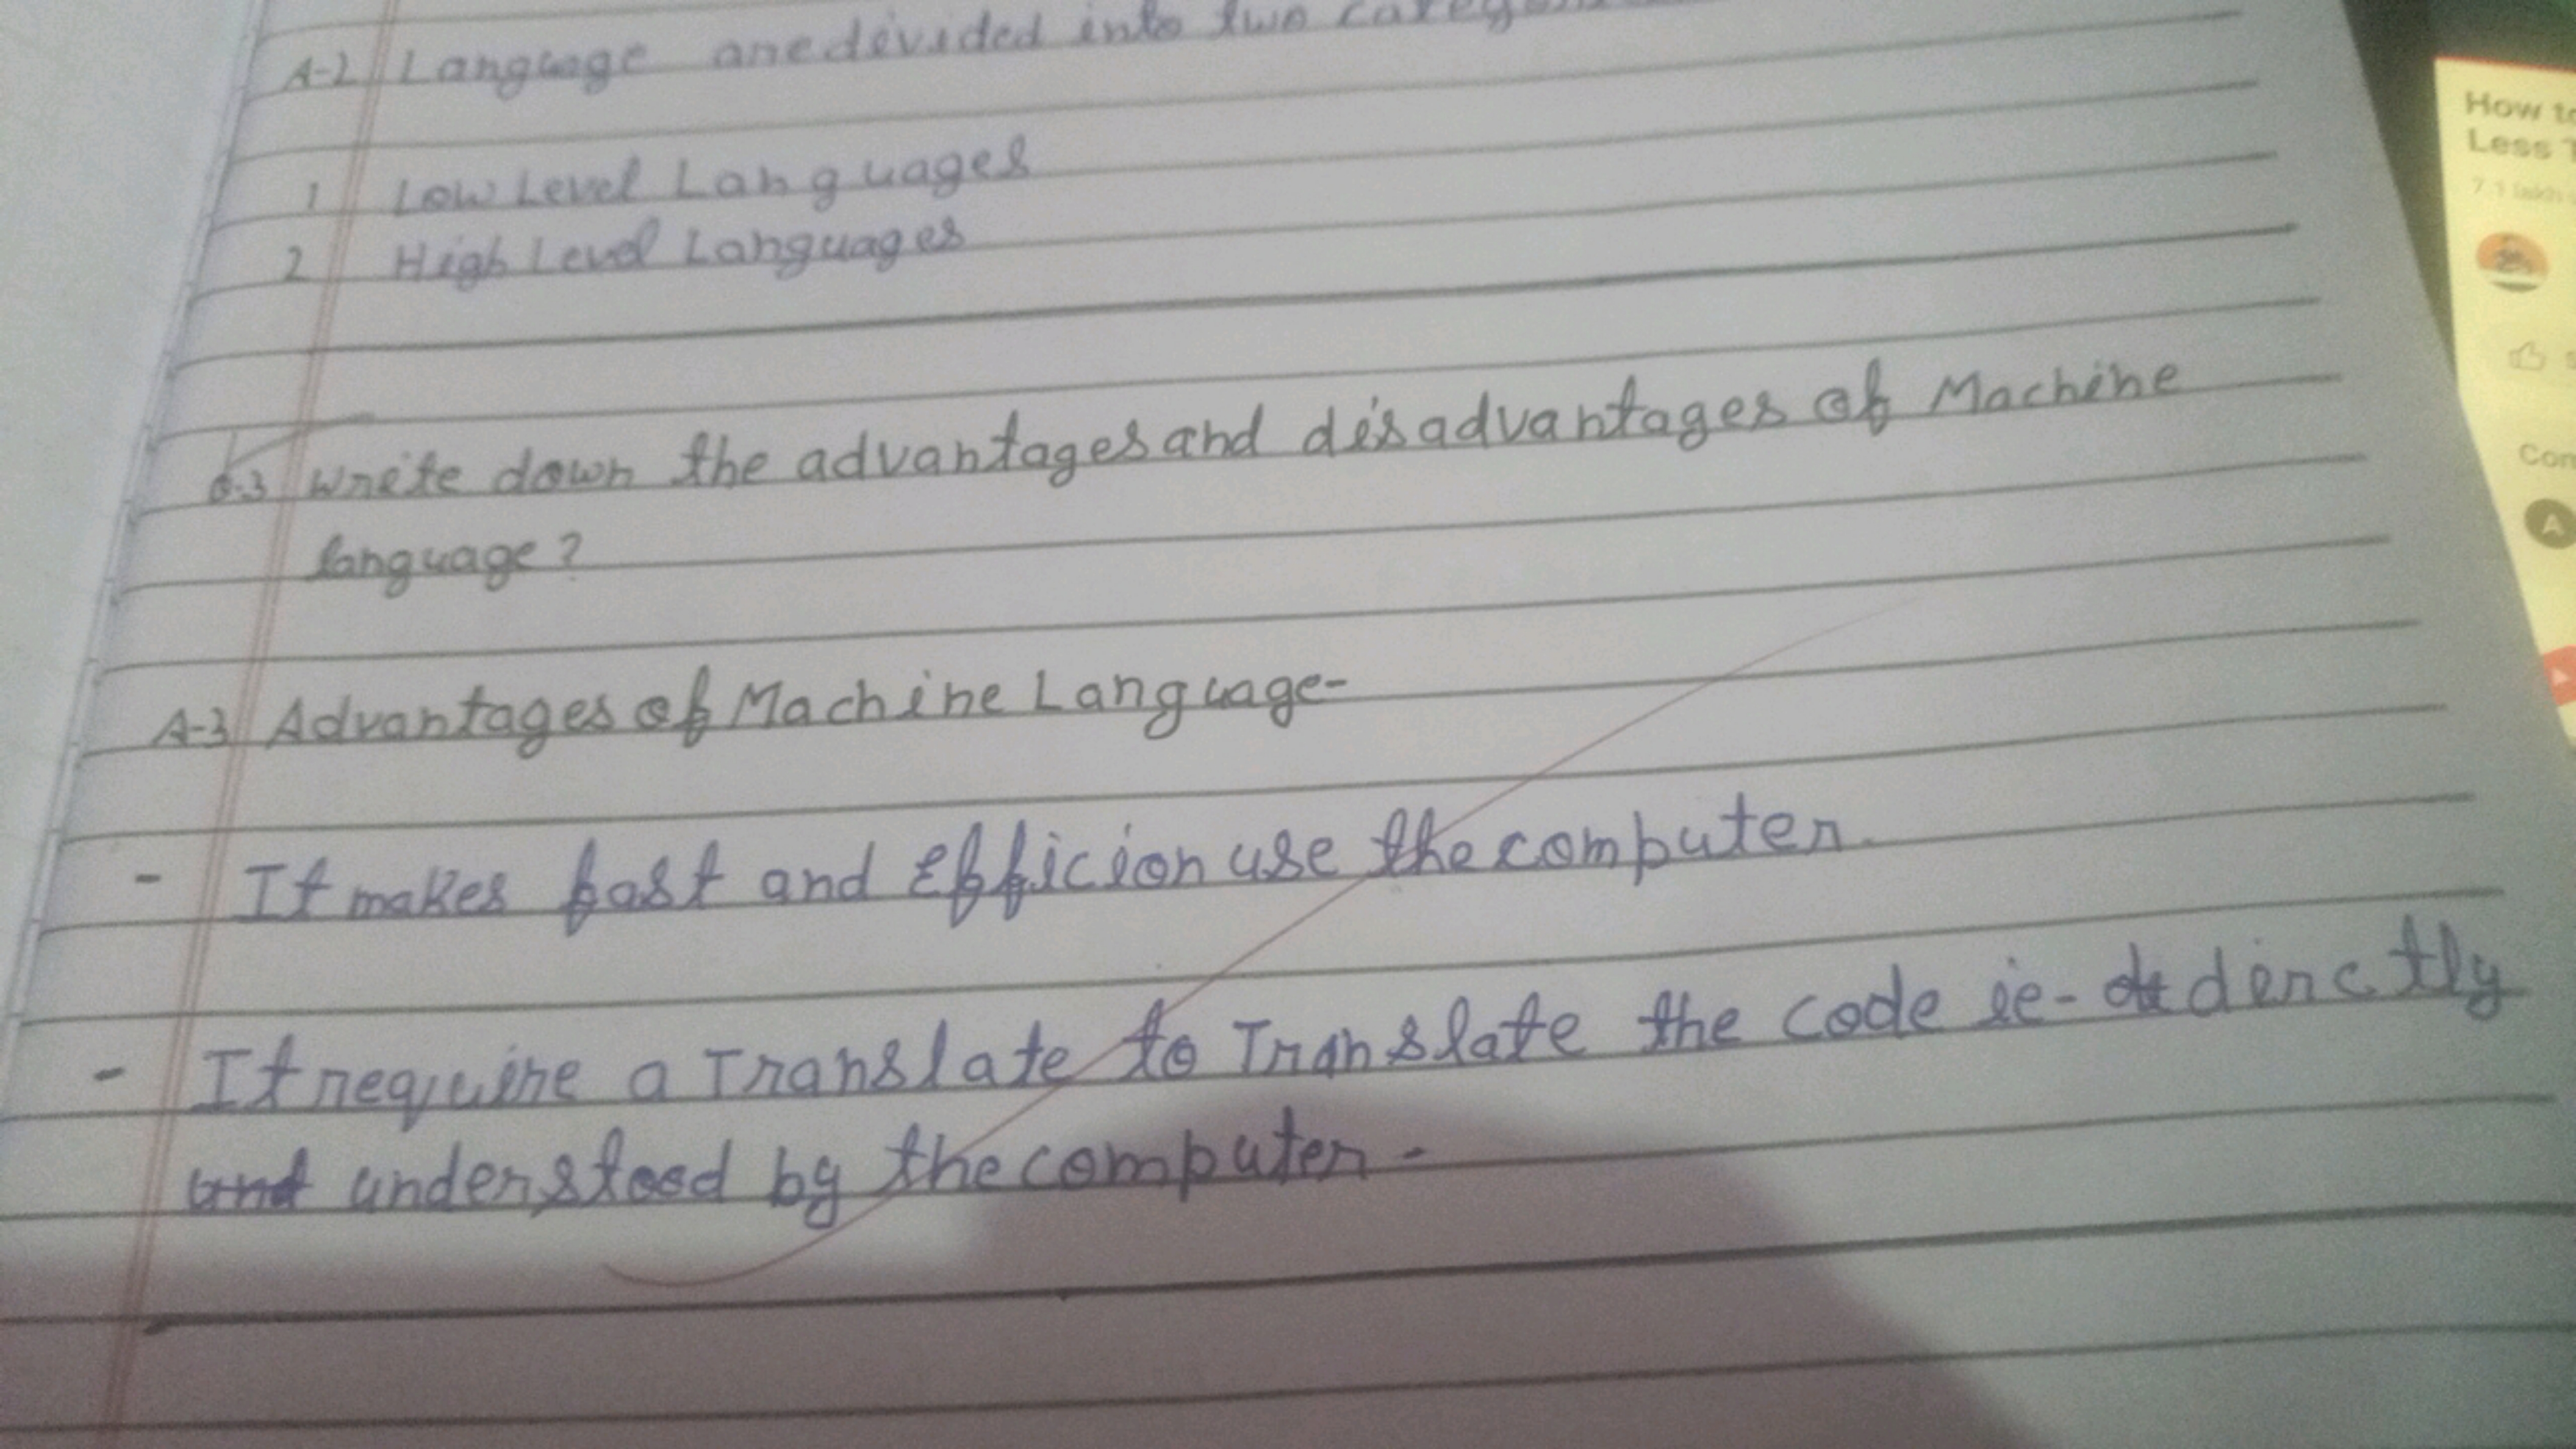 A-2 Language are divided into two
1 Low Level Languages
2 High Level Languages
Q-3 Write down the advantages and disadvantages of Machine
language?
A-3 Advantages of Machine Language-
- It makes fast and Efficion use the computer.
- It require a Translate to Translate the code ie- dirctly
understood by the computer-
How to
Less
Con
A